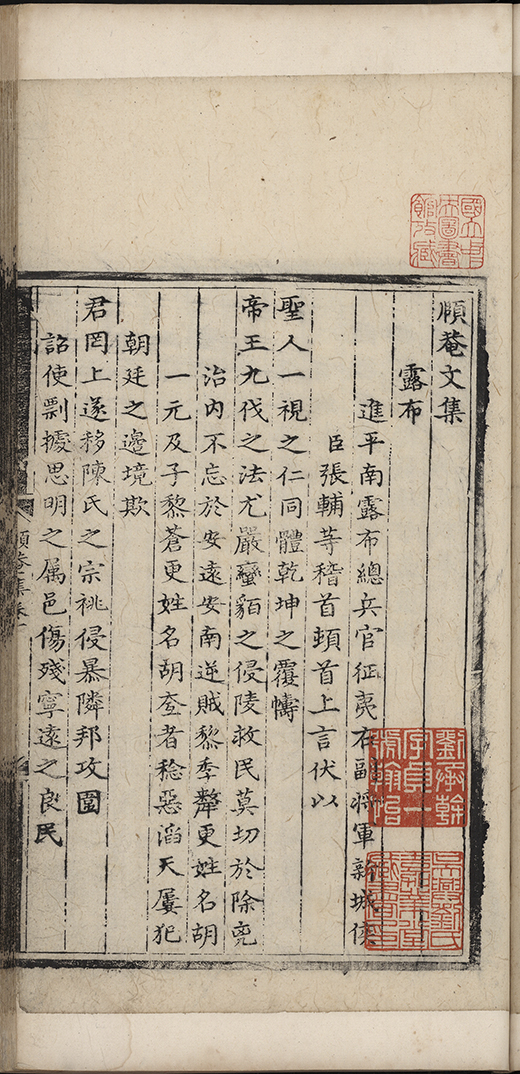 順菴文集
露布
進平南露布總兵官征夷右副將軍新城侯
臣張輔等稽首頓首上言伏以
聖人一視之仁同體乾坤之覆幬
帝王九伐之法尤嚴蠻貊之侵陵救民莫切於除兇
治內不忘於安遠安南逆賊黎季犛更姓名胡
一元及子黎蒼更姓名胡𡗨者稔惡滔天屢犯
朝廷之邊境欺
君罔上遂移陳氏之宗祧侵暴隣邦攻圍
詔使剽據思明之属邑傷殘寧遠之良民
順菴集卷一
國立中
央圖書
館收藏
劉承幹
字貞一
號翰怡
吳興劉氏
嘉業堂
藏書印